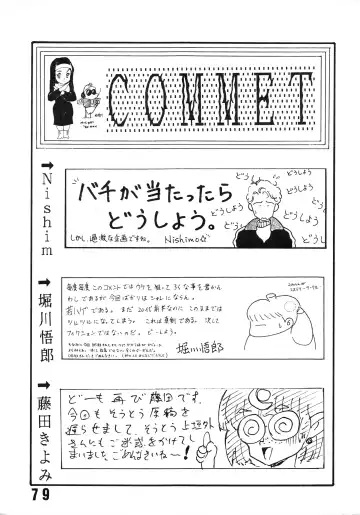 COMMET
→Nishim
『バチが当たったら
どうしよう。
しかし、過激な企画ですね。 Nishimo☆
どうしよう
どうしよう
どうしよう
どうしよう
→堀川悟郎
毎度毎度このコメントではウケを狙ってろくな事を書かん
わしであるが今回ばかりはシャレにならん。
若ハゲである。まだ20代前半なのにこのままでは
ツルツルになってしまう。これは真剣である。決して
フィクションではないのだ。どーしよう。
堀川悟郎
→藤田きよみ
どーも再び藤田です。
今回もそうとう原稿を
遅らせまして、そうとう上垣外
さんにもご迷惑をかけてし
まいました、ごめんなさいね〜!
79